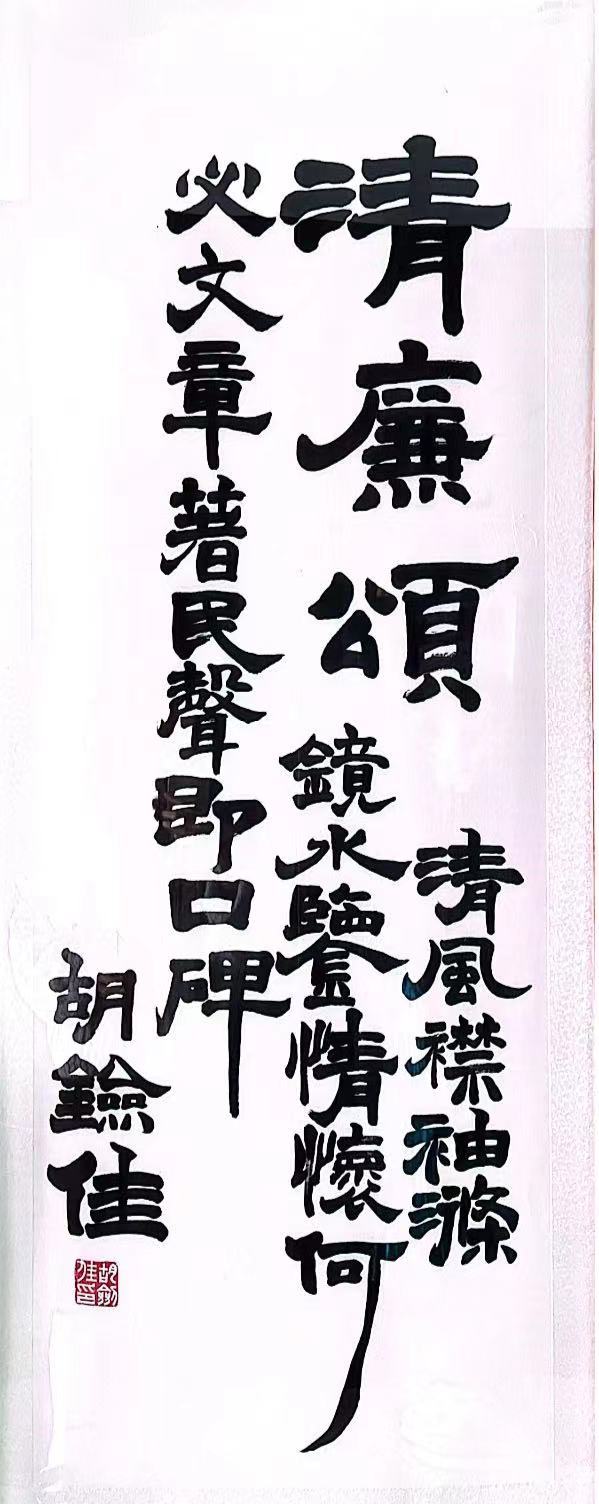 清廉頌
清風襟袖滌
鏡水鑒情懷何
必文章著民聲即口碑
胡鐱佳
胡劍
佳印